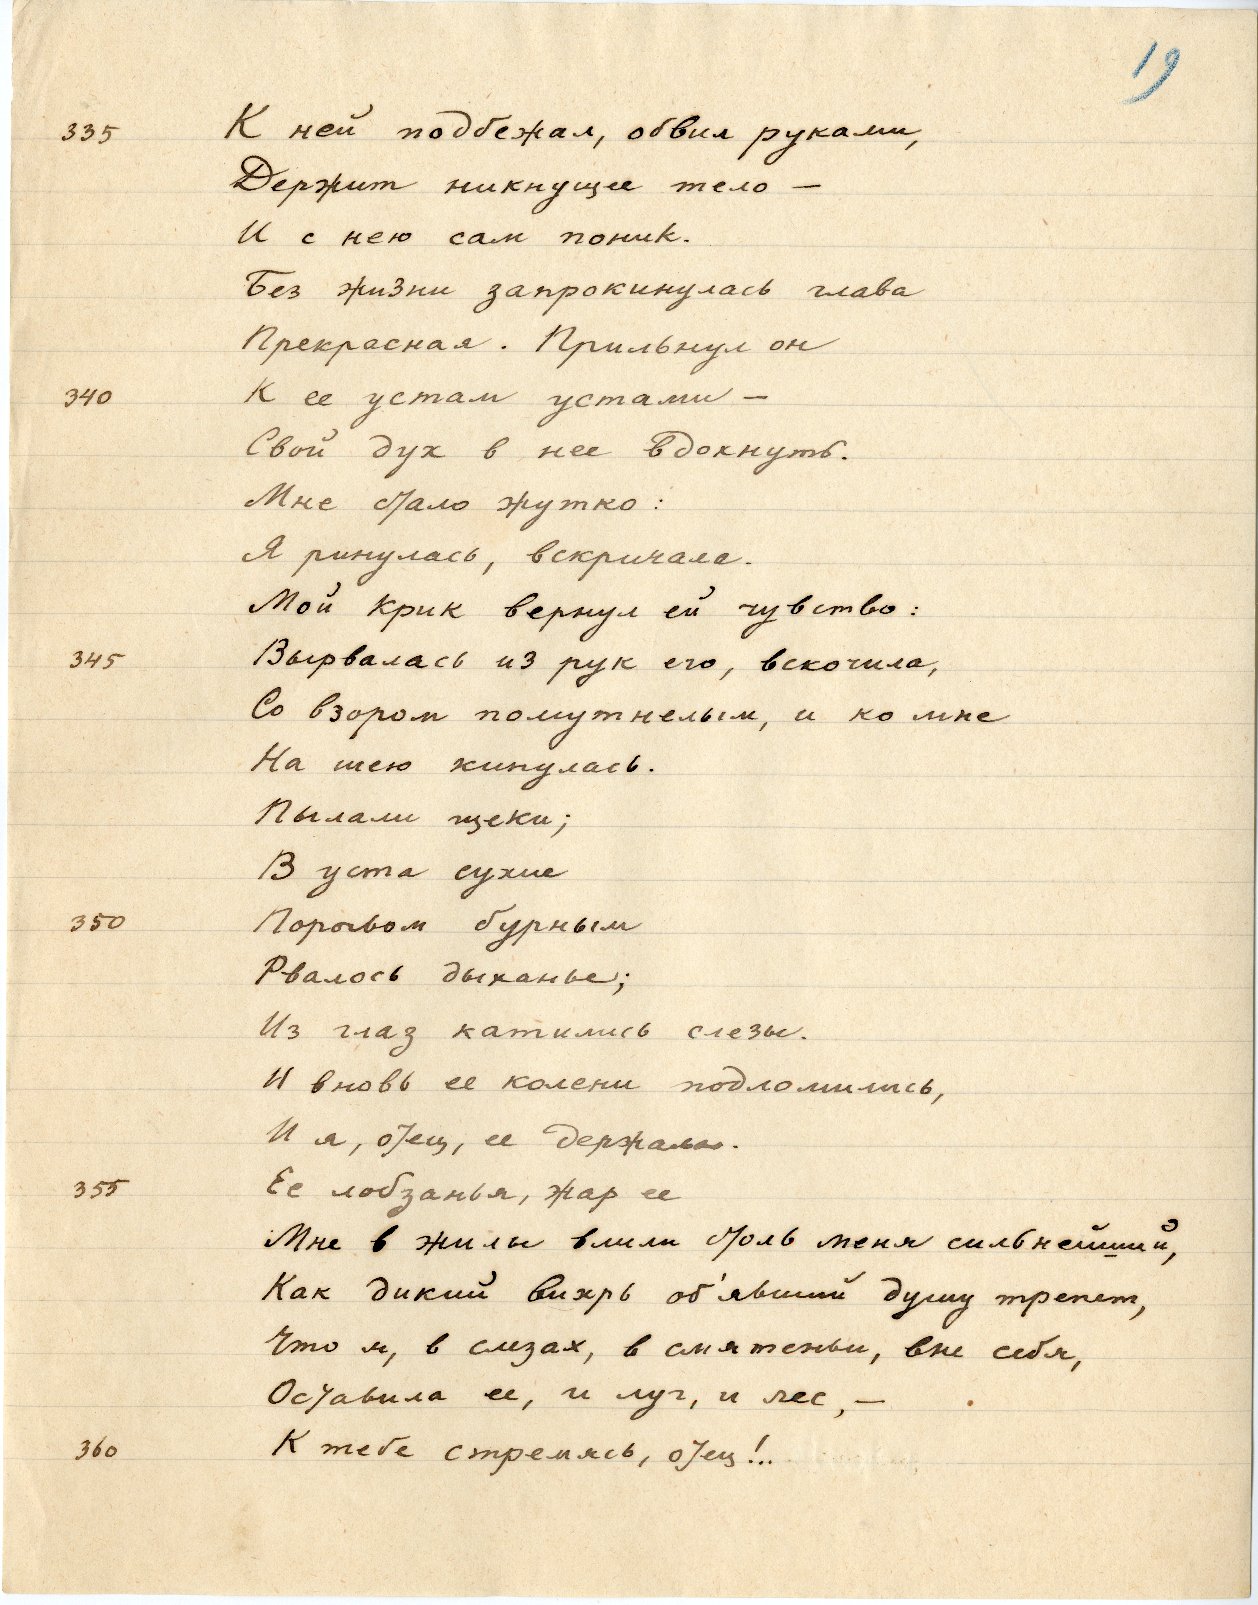 19
335 К ней подбежал, обвил руками,
Держит никнущее тело —
И с нею сам поник.
Без жизни запрокинулась глава
Прекрасная. Прильнул он
340 К ее устам устами —
Свой дух в нее вдохнуть.
Мне стало жутко:
Я ринулась, вскричала.
Мой крик вернул ей чувство:
345 Вырвалась из рук его, вскочила,
Со взором помутнелым, и ко мне
На шею кинулась.
Пылали щеки;
В уста сухие
350 Порывом бурным
Рвалось дыханье;
Из глаз катились слезы.
И вновь ее колени подломились,
И я, отец, ее держала.
355 Ее лобзанья, жар ее
Мне в жилы влили столь меня сильнейший,
Как дикий вихрь об'явший душу трепет,
Что я, в слезах, в смятеньи, вне себя,
Оставила ее, и луг, и лес, —
360 К тебе стремясь, отец!..